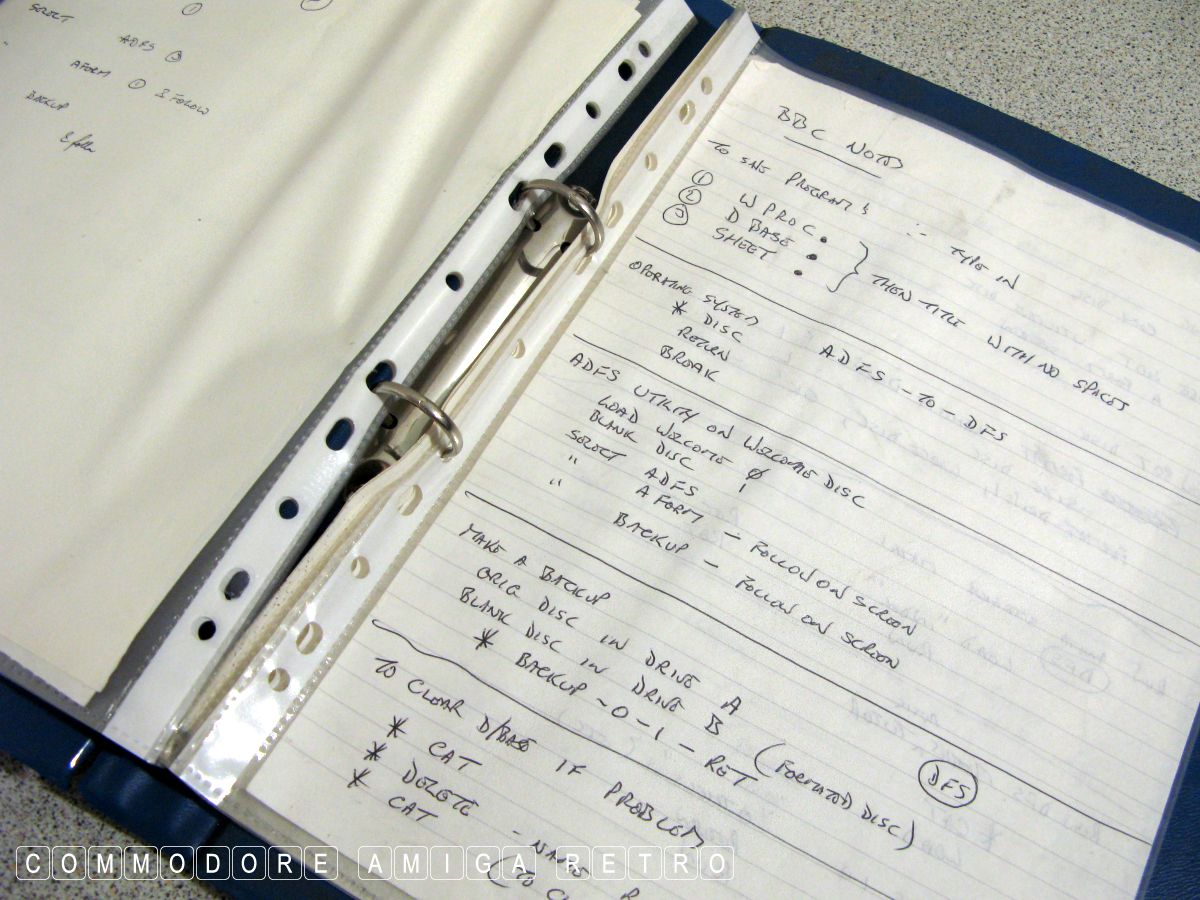 SELECT ①
ADFS ③
AFORM ① & FOLLOW
BACKUP
BBC NOTES
TO SAVE PROGRAMS :- TYPE IN
① W PROC.
② D BASE . } THEN TITLE WITH NO SPACES
③ SHEET .
OPERATING SYSTEM ADFS - TO - DFS
* DISC
RETURN
BREAK
ADFS UTILITY ON WELCOME DISC
LOAD WELCOME Ø
BLANK DISC 1
SELECT ADFS
" AFORM - FOLLOW ON SCREEN
" BACKUP - FOLLOW ON SCREEN
MAKE A BACKUP
ORIG DISC IN DRIVE A
BLANK DISC IN DRIVE B (FORMATED DISC) DFS
* BACKUP - 0 - 1 - RET
TO CLEAR D/BASE IF PROBLEM
* CAT
* DELETE - NAME
* CAT (TO
COMMODORE AMIGA RETRO